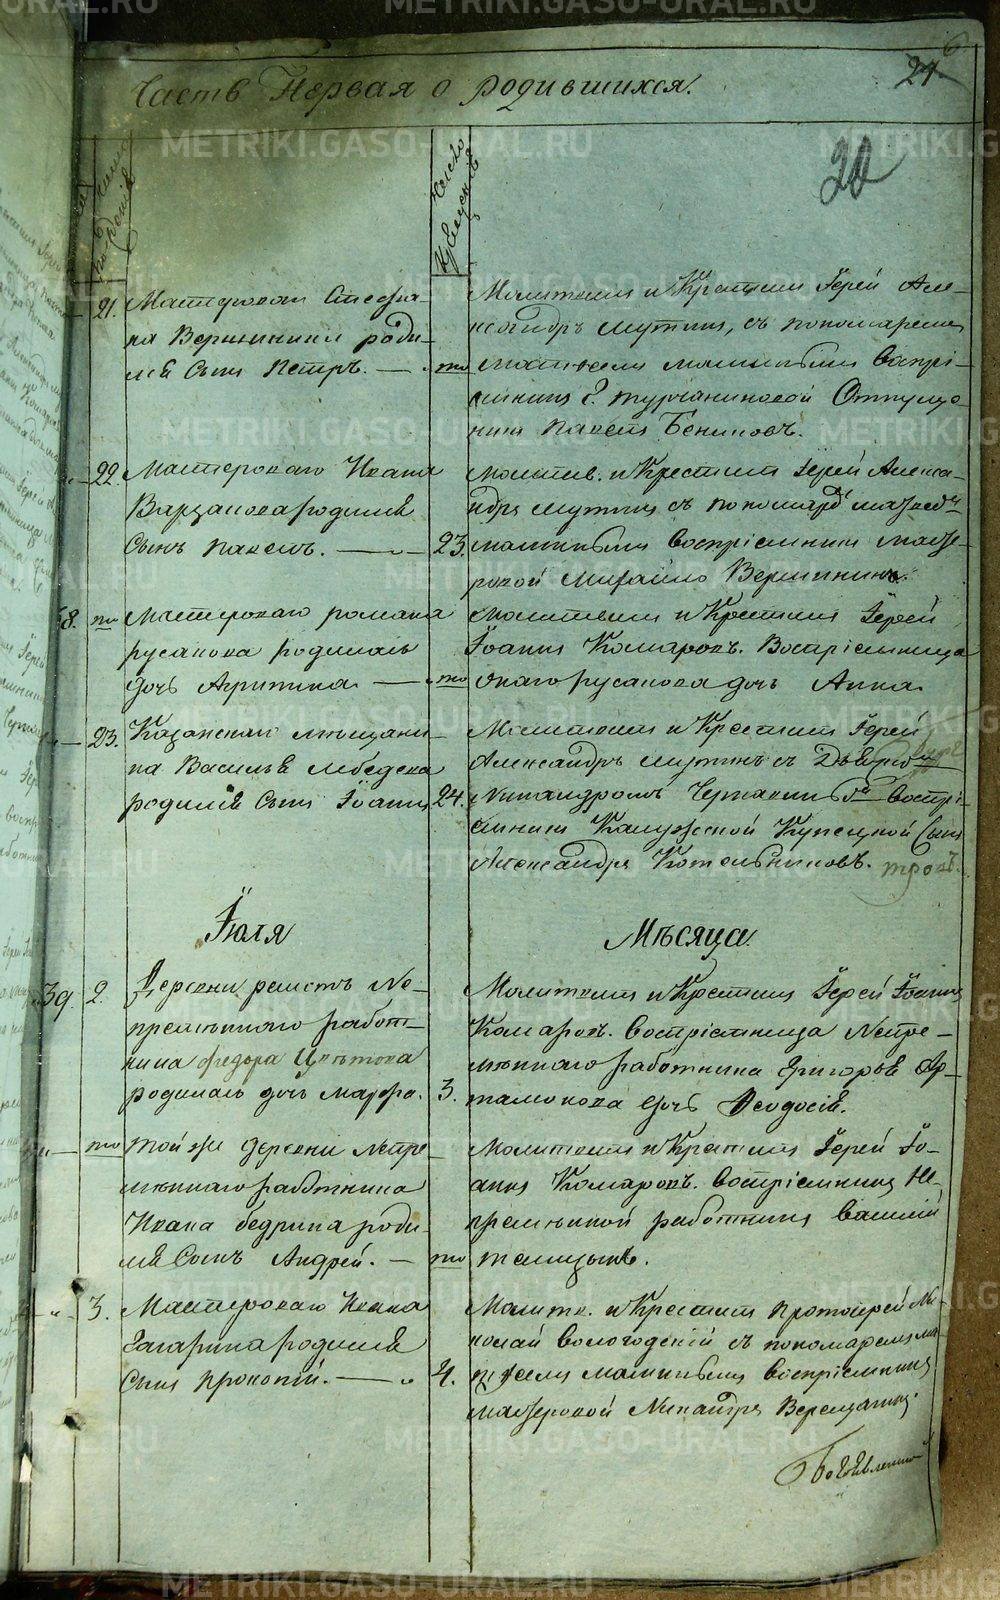 METRIKI.GASO-URAL.RU
Часть Первая о родившихся.
21
6
20
число
рождения
число
крещения
21. Мастероваго Стефа-
на Вершинина роди-
лся сынъ Петръ. — то
Молитвилъ и Крестилъ Іерей Але-
ксандръ Мутинъ, съ пономаремъ
Матвеемъ Малиновымъ Воспрі-
емникъ г. Турчаниновой Отпущо-
ный Павелъ Бениновъ.
22. Мастероваго Ивана
родился
Сынъ Павелъ. — 23.
Молитв. и Крестилъ Іерей Алекса-
ндръ Мутинъ съ пономарё Матвеё
Малиновымъ Воспріемникъ Масте-
ровой Михайло Вершининъ.
38. то Мастероваго Романа
Русанова родилась
дочь Агрипина — то
Молитвилъ и Крестилъ Іерей
Іоаннъ Комаровъ. Воспріемница
онаго Русанова дочь Анна
23. Казанскаго мещани-
на Василья Лебедева
родился Сынъ Іоаннъ 24.
Молитвилъ и Крестилъ Іерей
Александръ Мутинъ съ
Никандромъ Воспрі-
емникъ Калужской Купецкой Сынъ
Александръ Котельниковъ.
Іюля
Мѣсяца
39. 2. Деревни Не-
премѣннаго работ-
ника Федора Цвѣткова
родилась дочь Марфа. 3.
Молитвилъ и Крестилъ Іерей Іоаннъ
Комаровъ. Воспріемница Непре-
мѣннаго работника Григорья Ар-
тамонова дочь Ѳеодосія.
то той же деревни Непре-
мѣннаго работника
Ивана Бедрина роди-
лся Сынъ Андрей. — то
Молитвилъ и Крестилъ Іерей Іо-
аннъ Комаровъ. Воспріемникъ Не-
премѣнной работникъ Василій
3. Мастероваго Ивана
Гагарина родился
Сынъ Прокопій. — 4.
Молитв. и Крестилъ Протоіерей Ни-
колай Вологодскій съ пономаремъ Ма-
твеемъ Малиновымъ Воспріемникъ
Мастеровой Никандръ Верещагинъ.
Богоявленской